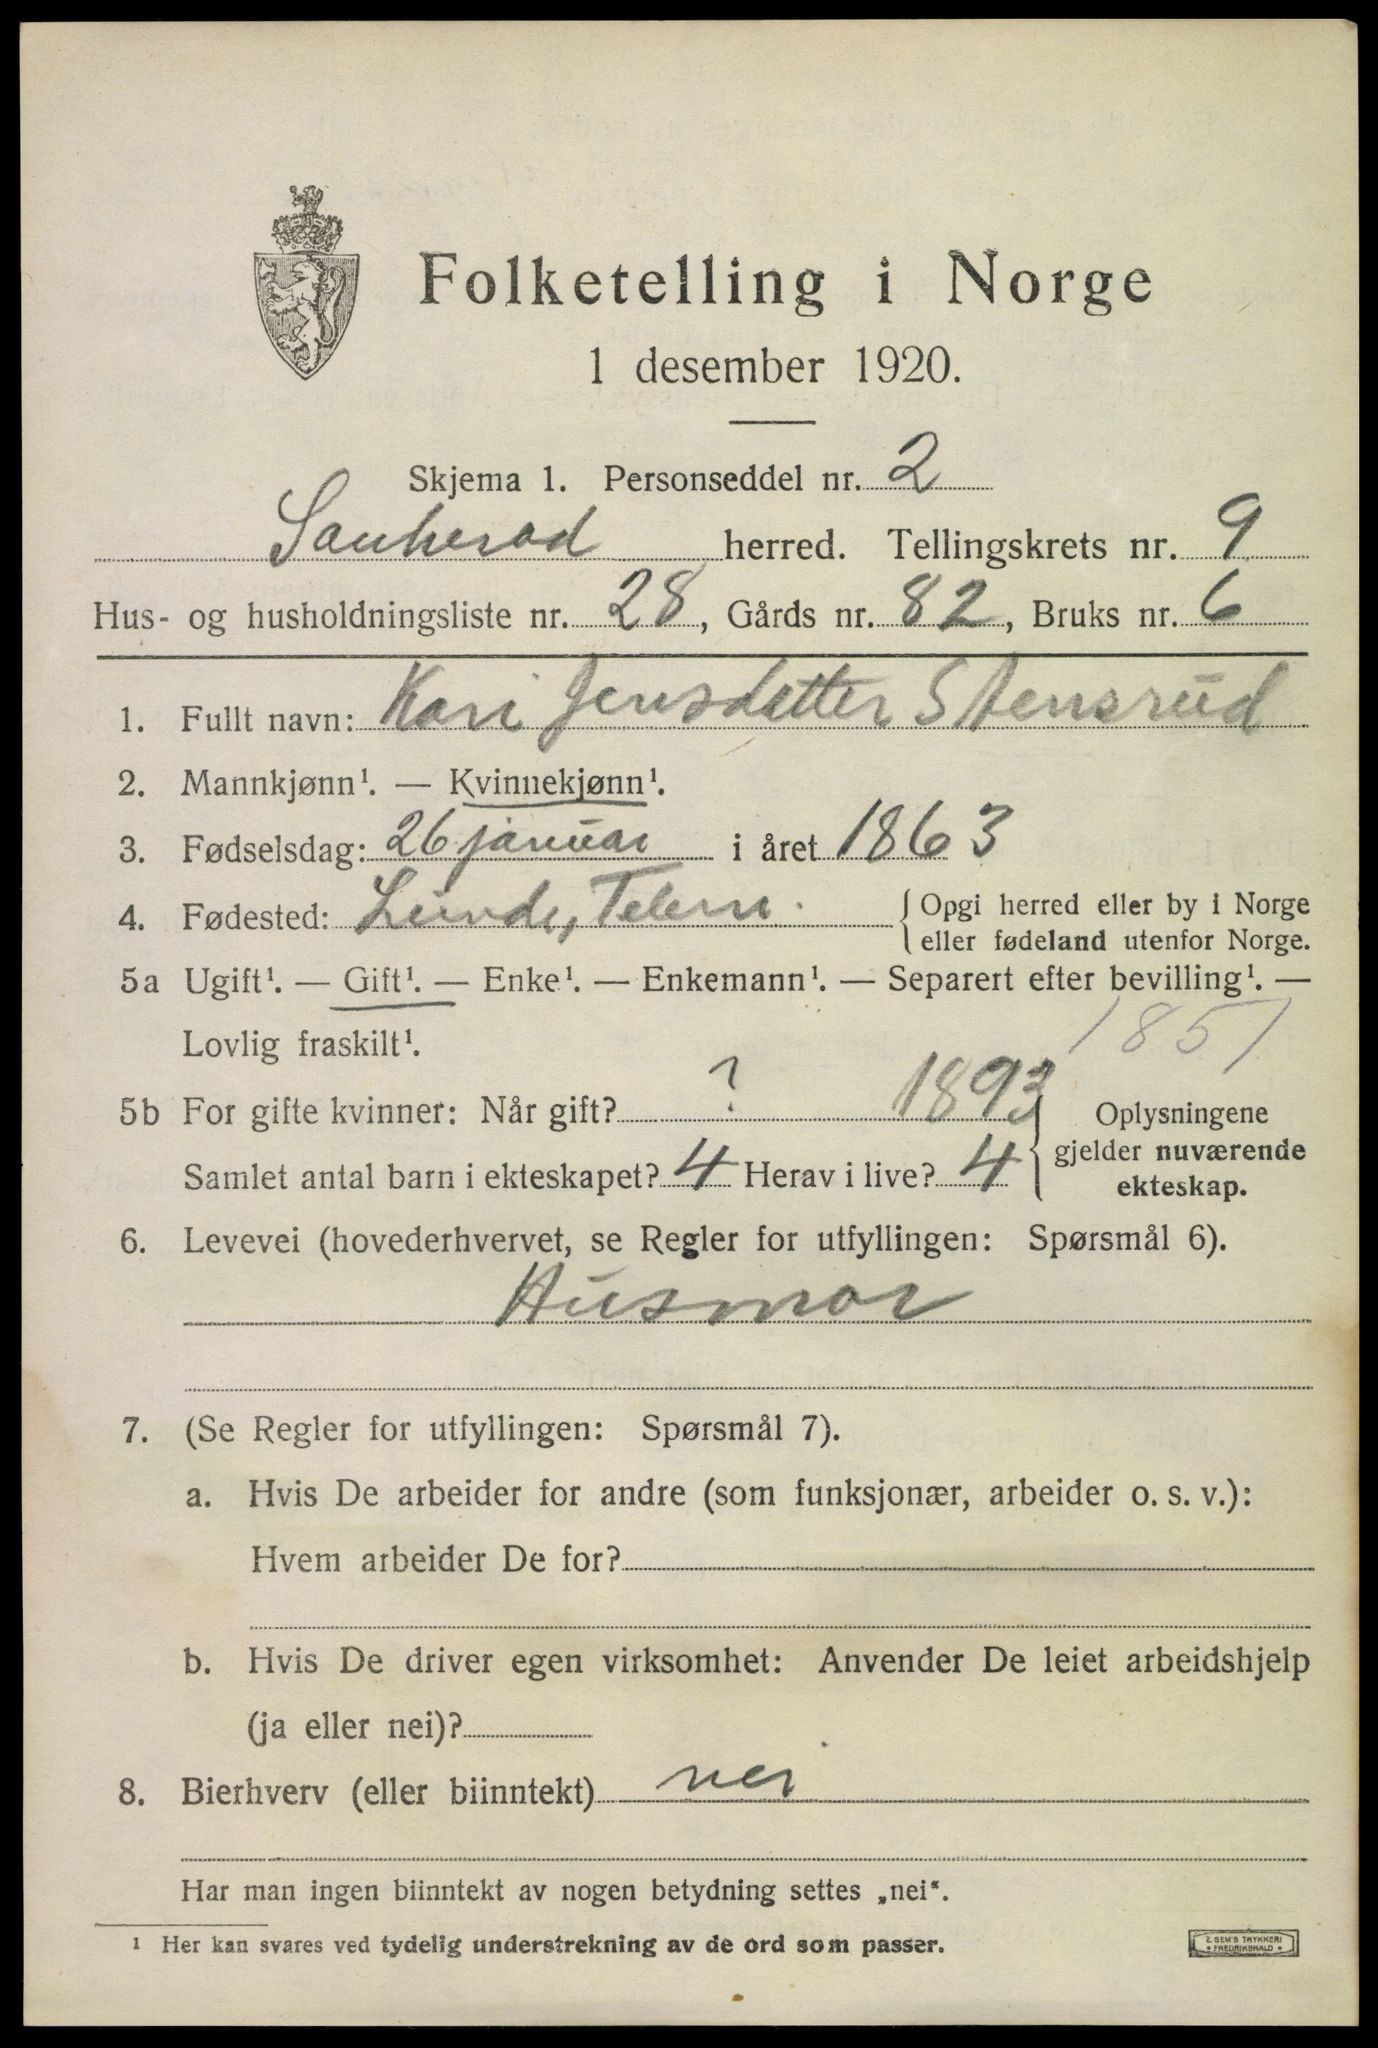 Folketelling i Norge
1 desember 1920.
Skjema 1. Personseddel nr. 2
Sauherad herred. Tellingskrets nr. 9
Hus- og husholdningsliste nr. 28, Gårds nr. 82, Bruks nr. 6
1. Fullt navn: Kari Jensdatter Stensrud
2. Mannkjønn¹. — Kvinnekjønn¹.
3. Fødselsdag: 26 januar i året 1863
4. Fødested: Lunde, Telem. Opgi herred eller by i Norge
eller fødeland utenfor Norge.
5a Ugift¹. — Gift¹. — Enke¹. — Enkemann¹. — Separert efter bevilling¹. —
Lovlig fraskilt¹. 1851
5b For gifte kvinner: Når gift? ? 1893 Oplysningene
Samlet antal barn i ekteskapet? 4 Herav i live? 4 gjelder nuværende
ekteskap.
6. Levevei (hovederhvervet, se Regler for utfyllingen: Spørsmål 6).
Husmor
7. (Se Regler for utfyllingen: Spørsmål 7).
a. Hvis De arbeider for andre (som funksjonær, arbeider o. s. v.):
Hvem arbeider De for?
b. Hvis De driver egen virksomhet: Anvender De leiet arbeidshjelp
(ja eller nei)?
8. Bierhverv (eller biinntekt) nei
Har man ingen biinntekt av nogen betydning settes „nei“.
¹ Her kan svares ved tydelig understrekning av de ord som passer.
E. SEM'S TRYKKERI
• FREDRIKSHALD •